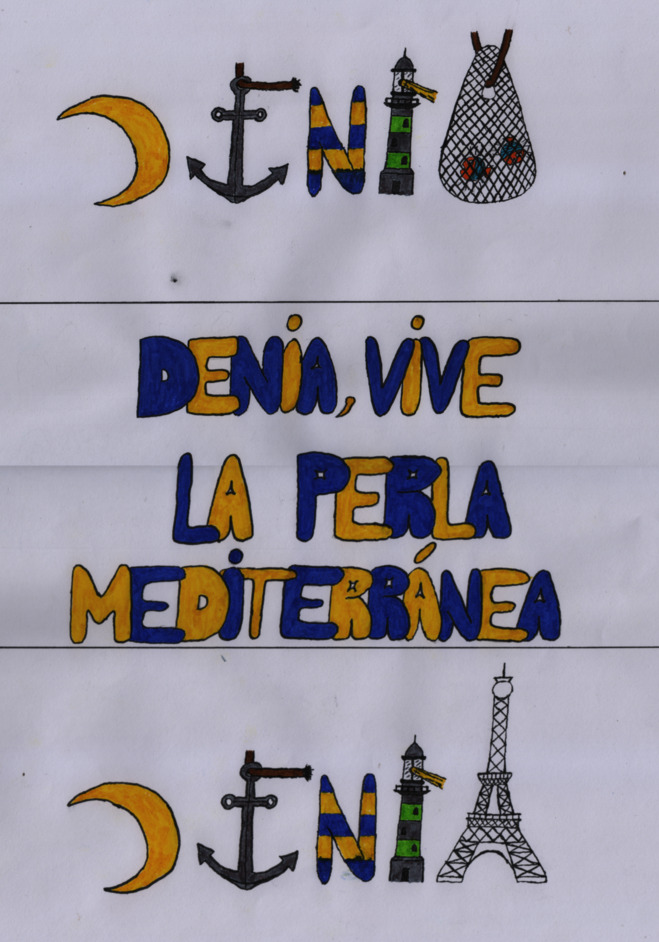 DENIA
DENIA, VIVE
LA PERLA
MEDITERRÁNEA
DENIA